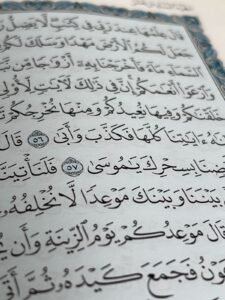 قَالَ عِلْمُهَا عِندَ رَبِّي فِي كِتَٰبٍ لَّا
جَعَلَ لَكُمُ ٱلْأَرْضَ مَهْدًا وَسَلَكَ لَكُمْ
ٱلسَّمَآءِ مَآءً فَأَخْرَجْنَا بِهِۦٓ أَزْوَٰجًا مِّن
وَٱرْعَوْا۟ أَنْعَٰمَكُمْ إِنَّ فِي ذَٰلِكَ لَءَايَٰتٍ لِّأُو۟لِي
خَلَقْنَٰكُمْ وَفِيهَا نُعِيدُكُمْ وَمِنْهَا نُخْرِجُكُمْ
ءَايَٰتِنَا كُلَّهَا فَكَذَّبَ وَأَبَىٰ ٥٦ قَالَ
بِسِحْرِكَ يَٰمُوسَىٰ ٥٧ فَلَنَأْتِيَنَّ
بَيْنَنَا وَبَيْنَكَ مَوْعِدًا لَّا نُخْلِفُهُۥ
قَالَ مَوْعِدُكُمْ يَوْمُ ٱلزِّينَةِ وَأَن
فَجَمَعَ كَيْدَهُۥ ثُمَّ أَتَىٰ